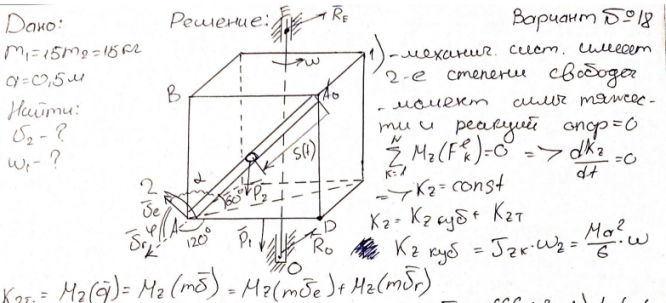 Дано:
m₁=15m₂=15кг
a=0,5м
Найти:
υ₂-?
ω₁-?
Решение:
E
R̄_E
ω
B
A₀
S(t)
α
60°
P̄₂
2
ῡe
ῡr
φ
A
120°
P̄₁
D
R̄₀
O
Вариант №18
1) - механич. сист. имеет
2-е степени свободы
- момент силы тяжес-
ти и реакций опор=0
N
∑ M_z(F̄ᵉ_k)=0 => dK_z/dt =0
k=1
=> K_z=const
K_z= K_z куб + K_zт
K_z куб = J_zк·ω_z= Ma²/6 ·ω
K_zт = M_z(q̄)= M_z(mῡ) = M_z(mῡe)+M_z(mῡr)